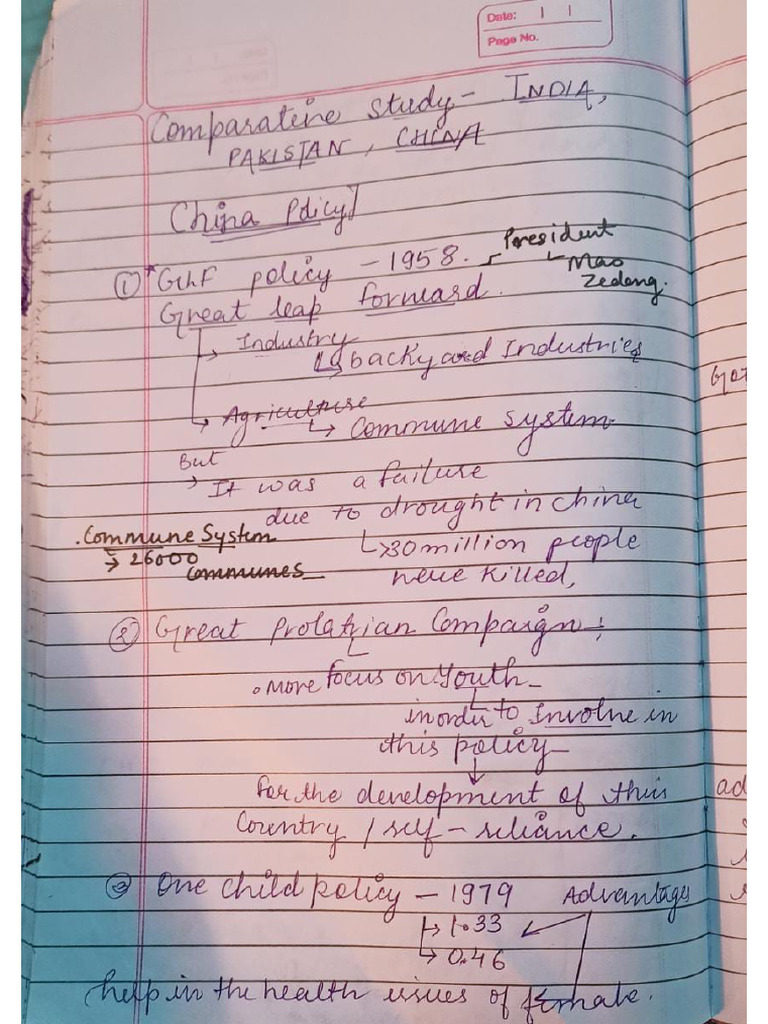 Date: | |
Page No.
Comparative Study - INDIA,
PAKISTAN, CHINA
China Policy
① *GLF policy - 1958.
President
Mao
Zedong.
Great leap forward.
→ Industry
↳ backyard Industries
→ Agriculture
↳ Commune System
But
→ It was a failure
due to drought in china
.Commune System
→ 26000
Communes
↳30 million people
were killed,
② Great Prolatrian Compaign :
• More focus on Youth
inorder to Involve in
this policy
↓
for the development of their
Country / self-reliance.
③ One child policy - 1979 Advantages
→ 1.33
→ 0.46
help in the health issues of female.
ad